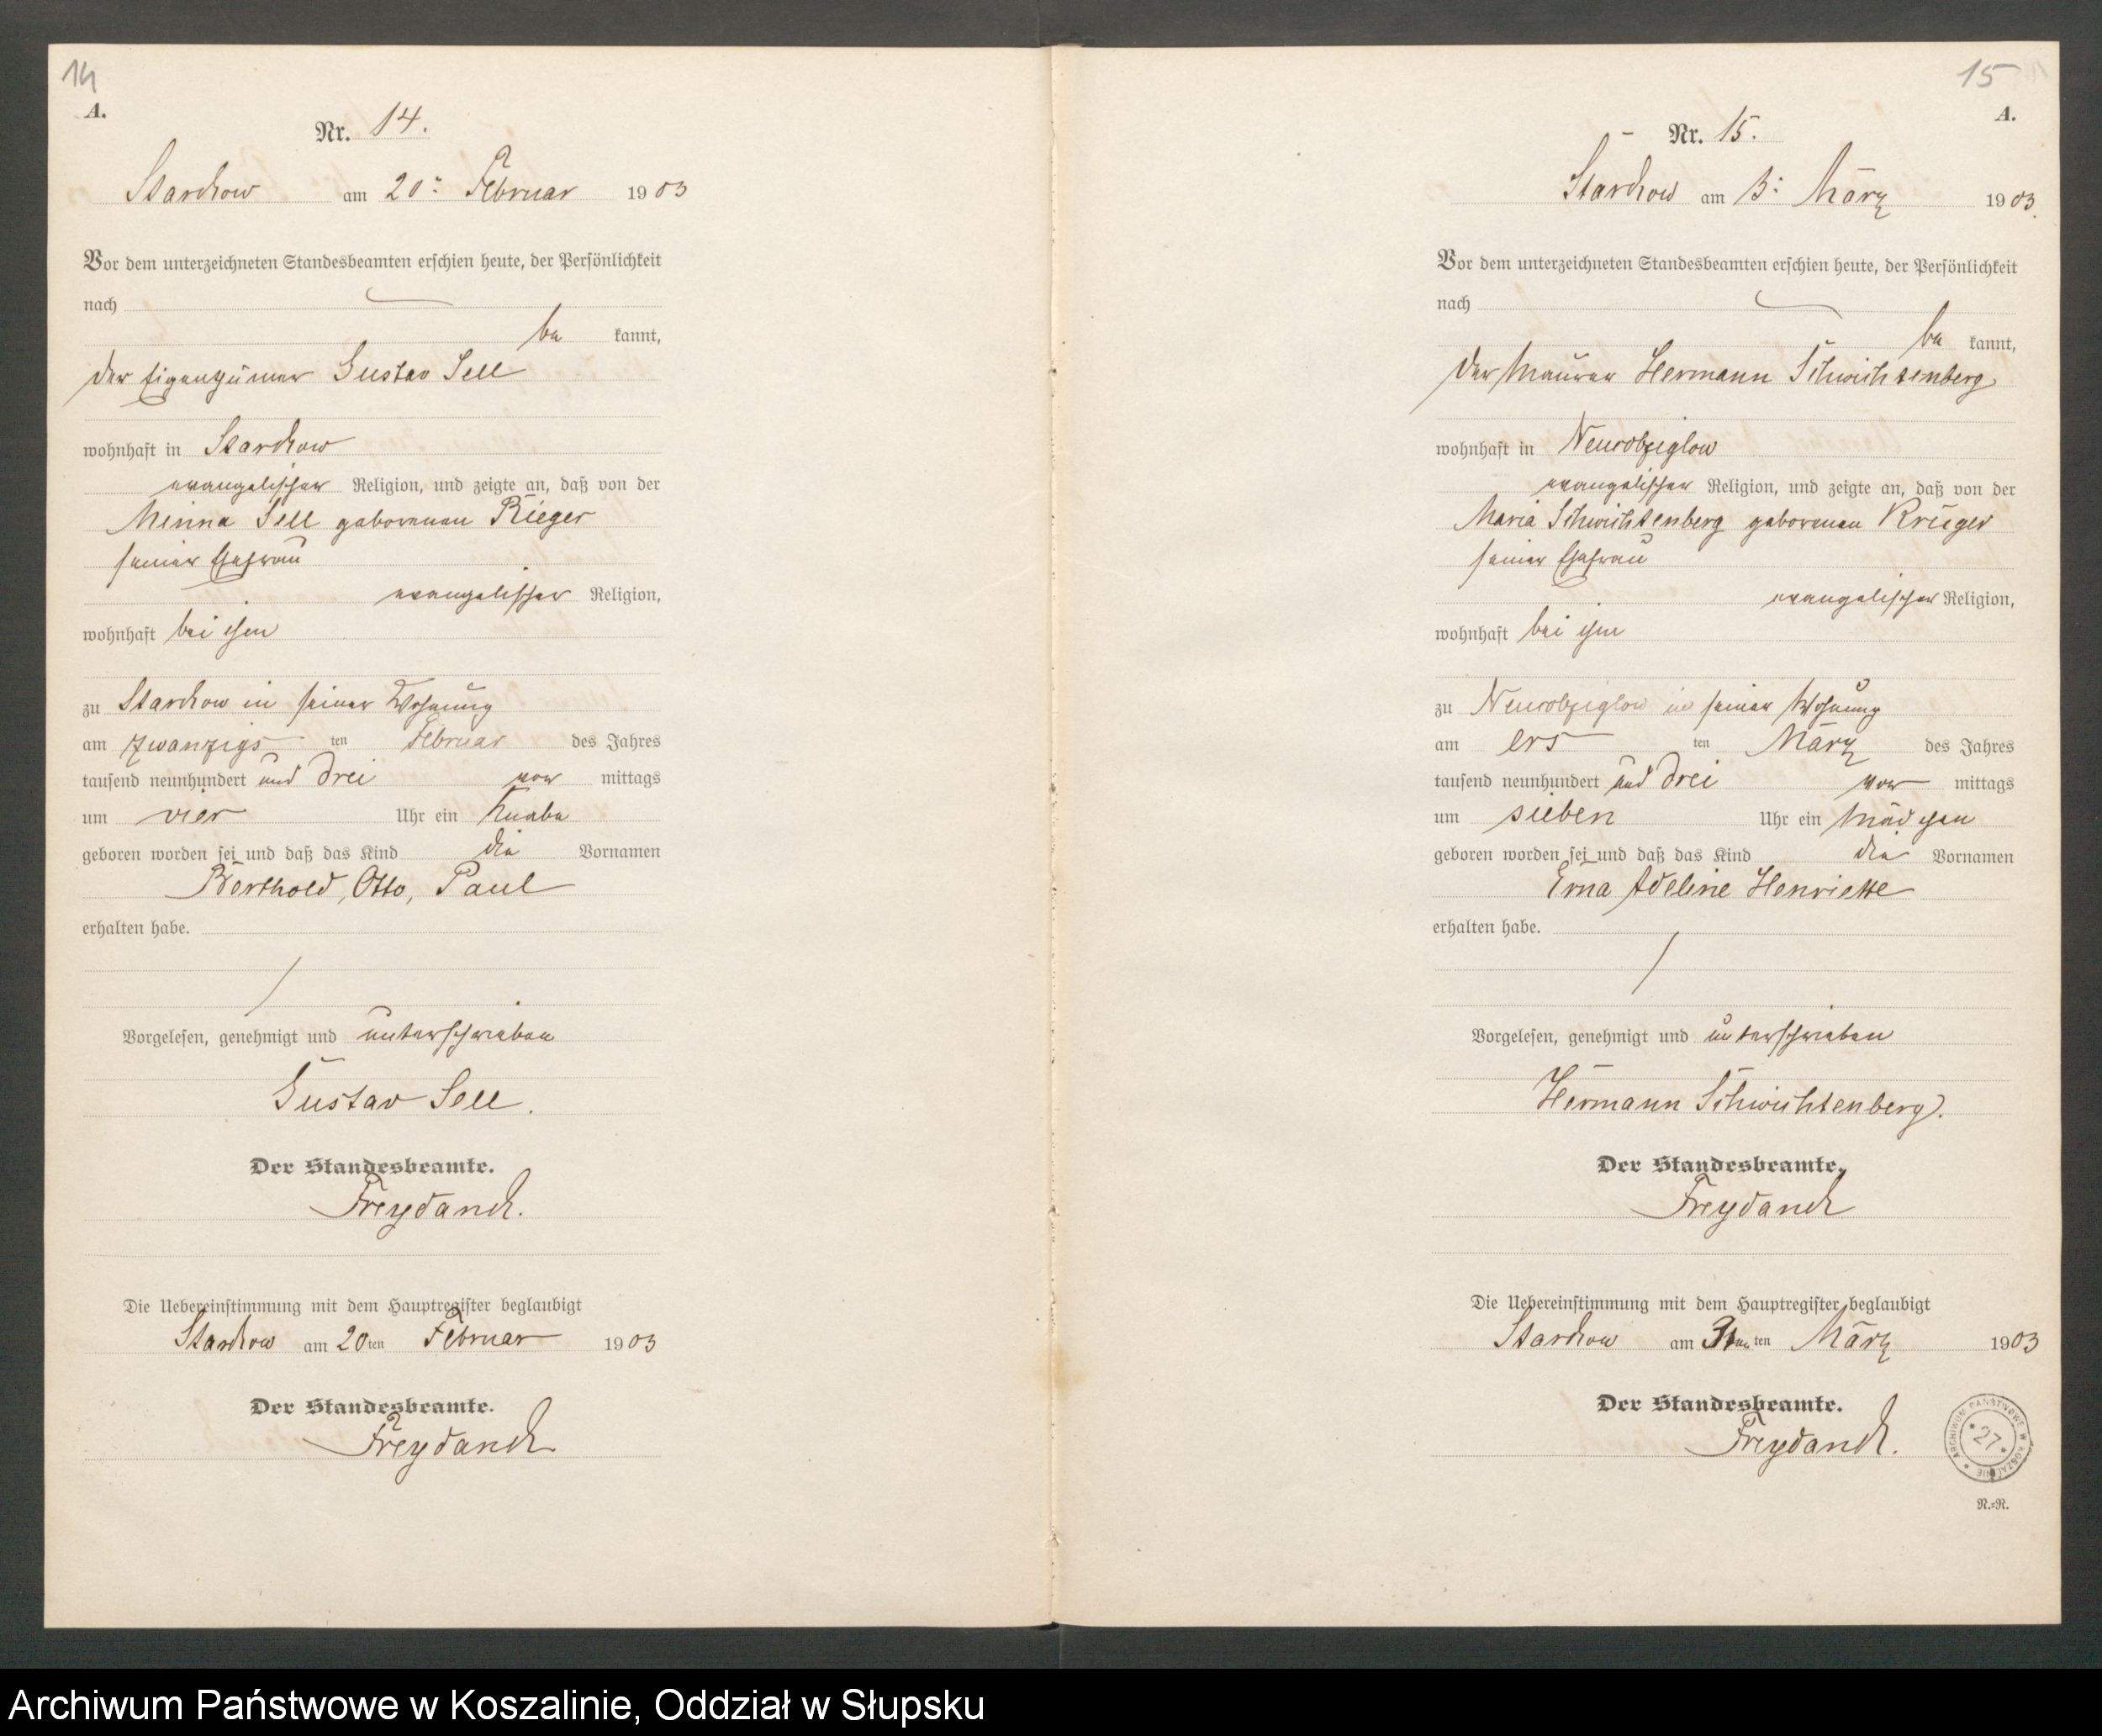 14
A.
Nr. 14.
Starckow am 20ᵗ Februar 1903
Vor dem unterzeichneten Standesbeamten erschien heute, der Persönlichkeit
nach
be kannt,
der Eigenthümer Gustav Sell
wohnhaft in Starckow
evangelischer Religion, und zeigte an, daß von der
Minna Sell geborenen Rieger
seiner Ehefrau
evangelischer Religion,
wohnhaft bei ihm
zu Starckow in seiner Wohnung
am zwanzigs ten Februar des Jahres
tausend neunhundert und drei vor mittags
um vier Uhr ein Knabe
geboren worden sei und daß das Kind die Vornamen
Berthold, Otto, Paul
erhalten habe.
Vorgelesen, genehmigt und unterschrieben
Gustav Sell.
Der Standesbeamte.
Freydanck.
Die Uebereinstimmung mit dem Hauptregister beglaubigt
Starckow am 20ten Februar 1903
Der Standesbeamte.
Freydanck
15
A.
Nr. 15.
Starckow am 3: März 1903.
Vor dem unterzeichneten Standesbeamten erschien heute, der Persönlichkeit
nach
be kannt,
der Maurer Hermann Schwichtenberg
wohnhaft in Neucobziglow
evangelischer Religion, und zeigte an, daß von der
Maria Schwichtenberg geborenen Krüger
seiner Ehefrau
evangelischer Religion,
wohnhaft bei ihm
zu in seiner Wohnung
am ers ten März des Jahres
tausend neunhundert und drei vor mittags
um sieben Uhr ein Mädchen
geboren worden sei und daß das Kind die Vornamen
Erna Adeline Henriette
erhalten habe.
Vorgelesen, genehmigt und unterschrieben
Hermann Schwichtenberg.
Der Standesbeamte.
Freydanck
Die Uebereinstimmung mit dem Hauptregister beglaubigt
Starckow am 3 ten März 1903
Der Standesbeamte.
Freydanck.
ARCHIWUM PAŃSTWOWE W KOSZALINIE
*27*
N.=N.
Archiwum Państwowe w Koszalinie, Oddział w Słupsku